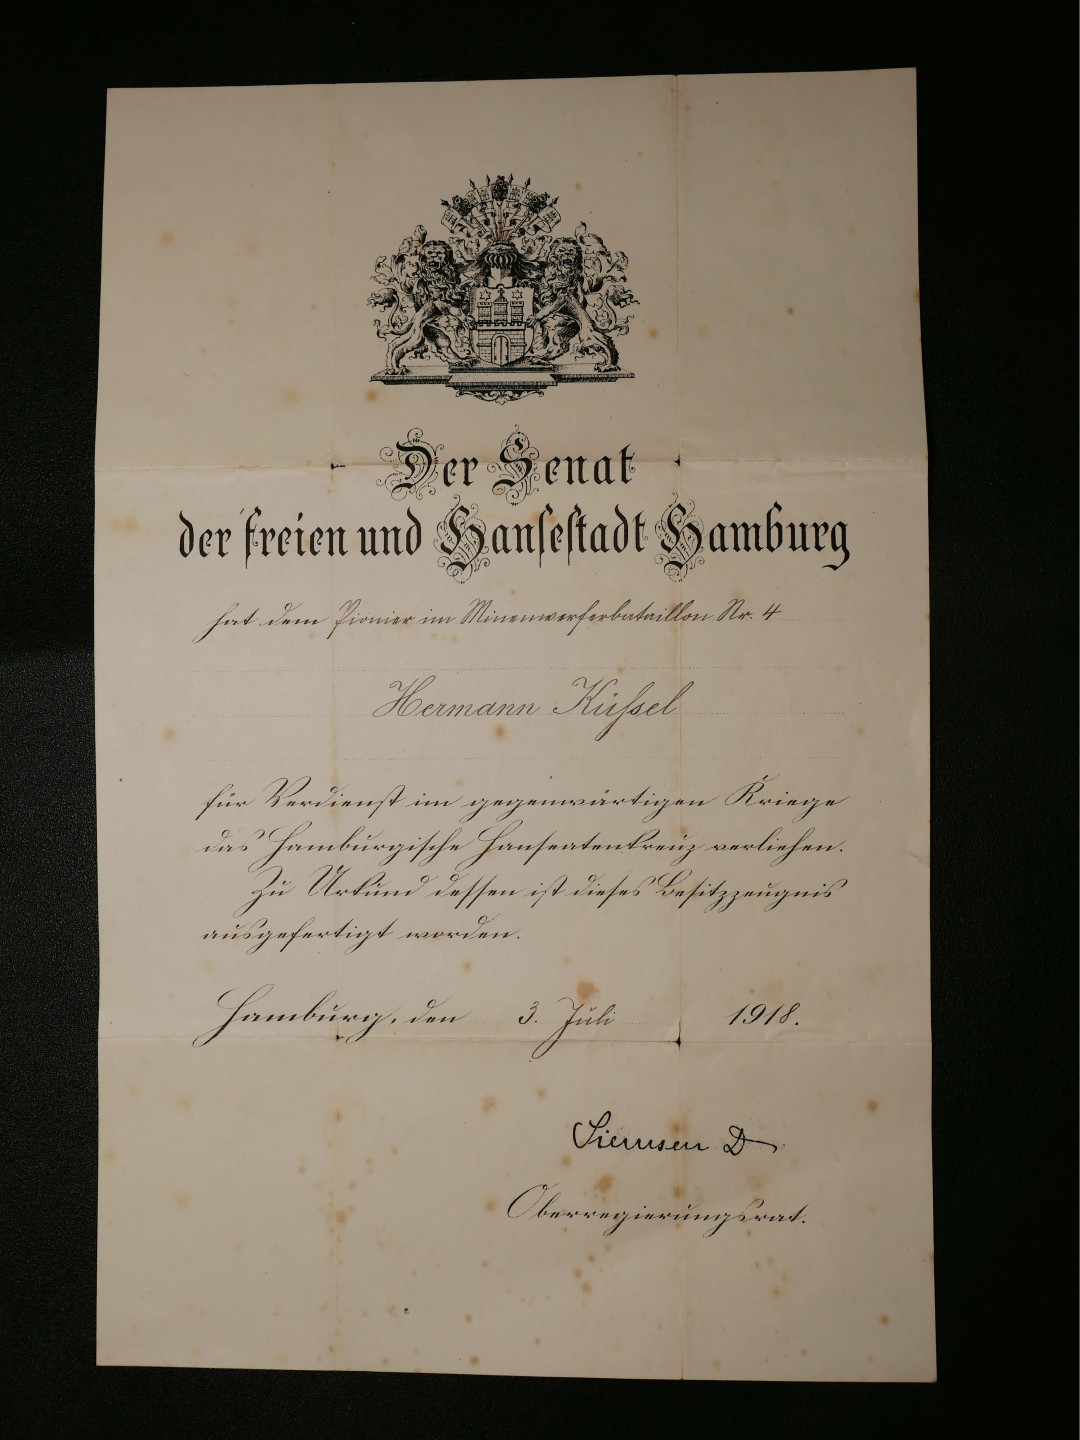 Der Senat
der freien und Hansestadt Hamburg
hat dem Pionier im Minenwerferbataillon Nr. 4
Hermann Küssel
für Verdienst im gegenwärtigen Kriege
das Hamburgische Hanseatenkreuz verliehen.
Zu Urkund dessen ist dieses Besitzzeugnis
ausgefertigt worden.
Hamburg, den 3. Juli 1918.
Siemsen Dr
Oberregierungsrat.